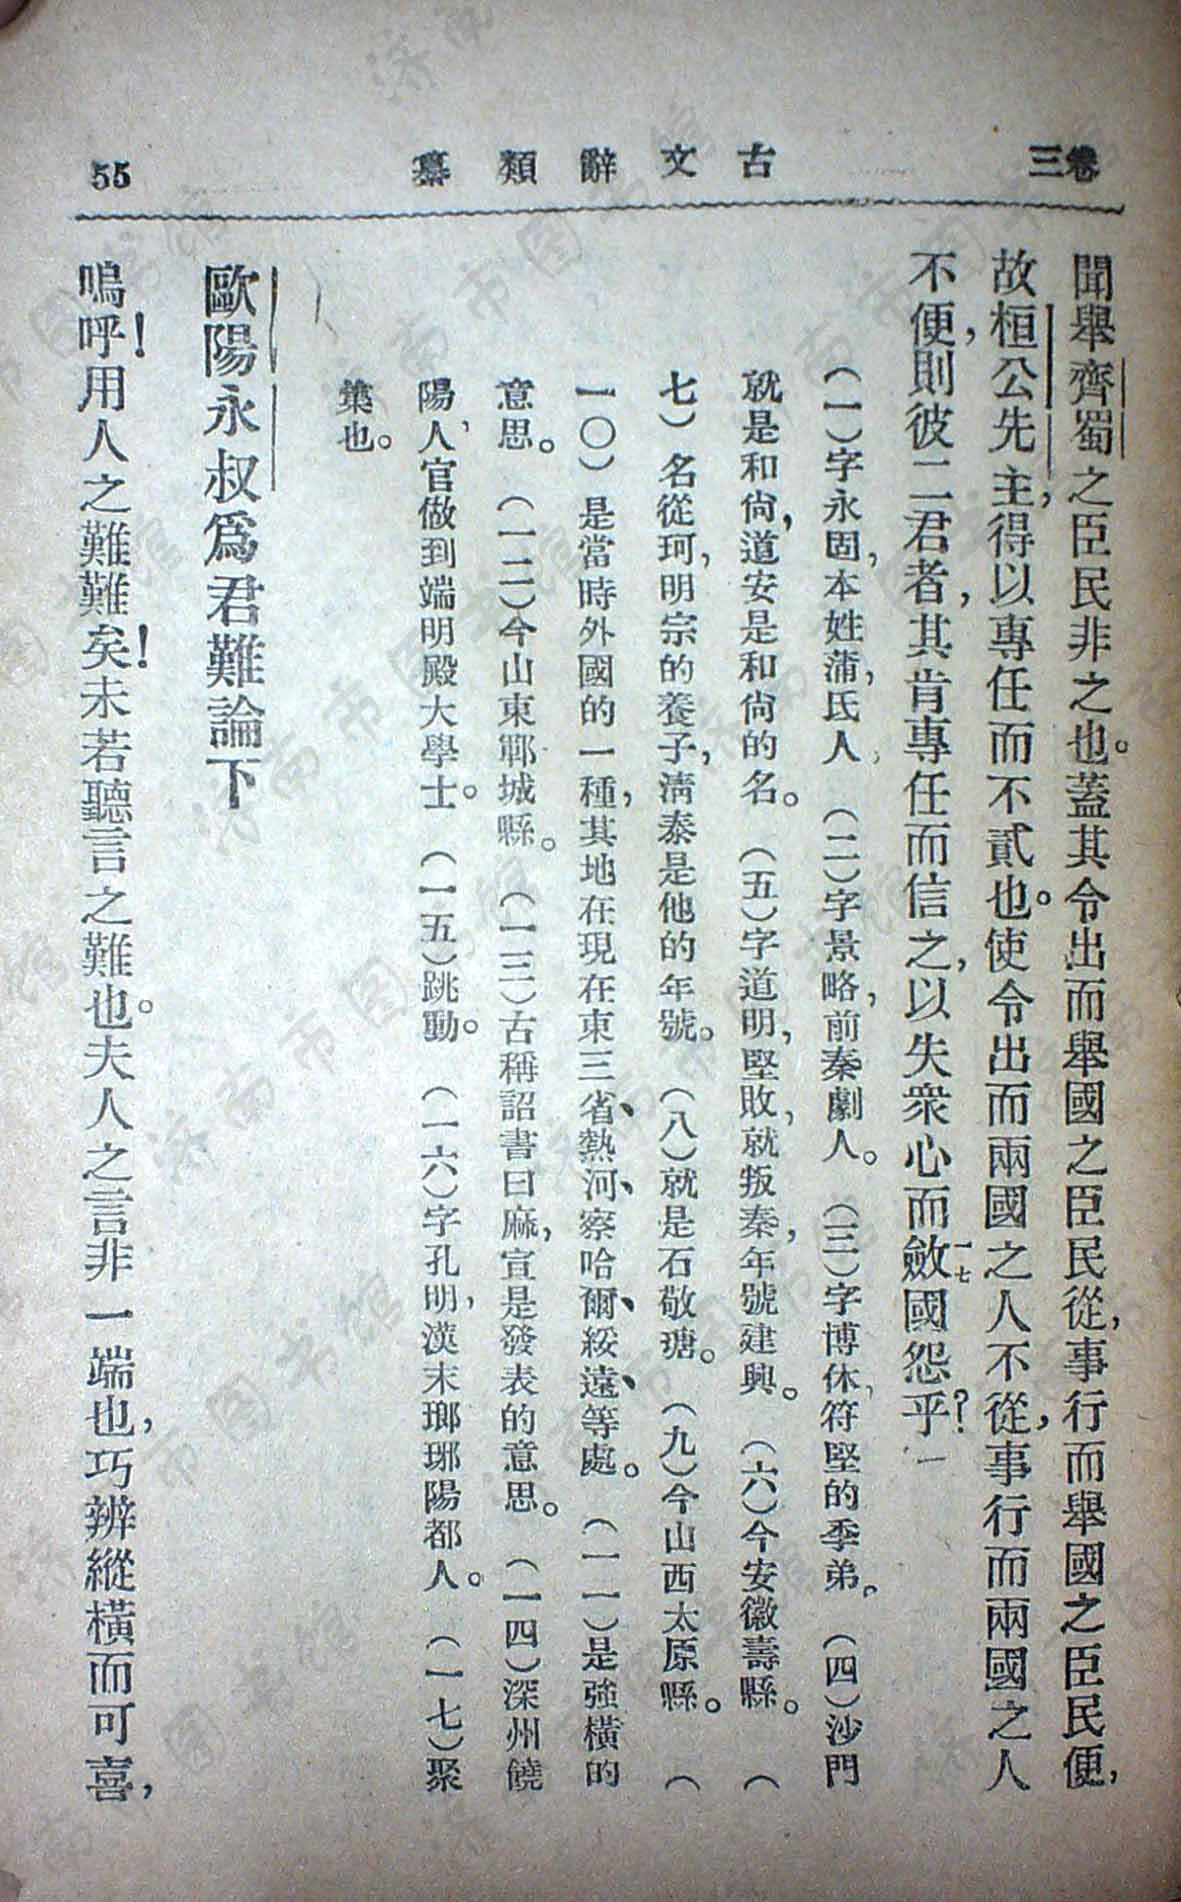 卷三
古文辭類纂
55
聞舉齊蜀之臣民非之也。蓋其令出而舉國之臣民從，事行而舉國之臣民便，
故桓公先主，得以專任而不貳也。使令出而兩國之人不從，事行而兩國之人
不便，則彼二君者，其肯專任而信之，以失衆心而斂一七國怨乎？
（一）字永固，本姓蒲，氏人，（二）字景略，前秦劇人。（三）字博休，符堅的季弟。（四）沙門
就是和尙，道安是和尙的名。（五）字道明，堅敗，就叛秦，年號建興。（六）今安徽壽縣。（
七）名從珂，明宗的養子，淸泰是他的年號。（八）就是石敬瑭。（九）今山西太原縣。（
一〇）是當時外國的一種，其地在現在東三省、熱河、察哈爾、綏遠、等處。（一一）是強橫的
意思。（一二）今山東鄆城縣。（一三）古稱詔書曰麻，宣是發表的意思。（一四）深州饒
陽人，官做到端明殿大學士。（一五）跳動。（一六）字孔明，漢末瑯琊陽都人。（一七）聚
集也。
歐陽永叔爲君難論下
嗚呼！用人之難難矣！未若聽言之難也。夫人之言非一端也，巧辨縱橫而可喜，
济南市图书馆